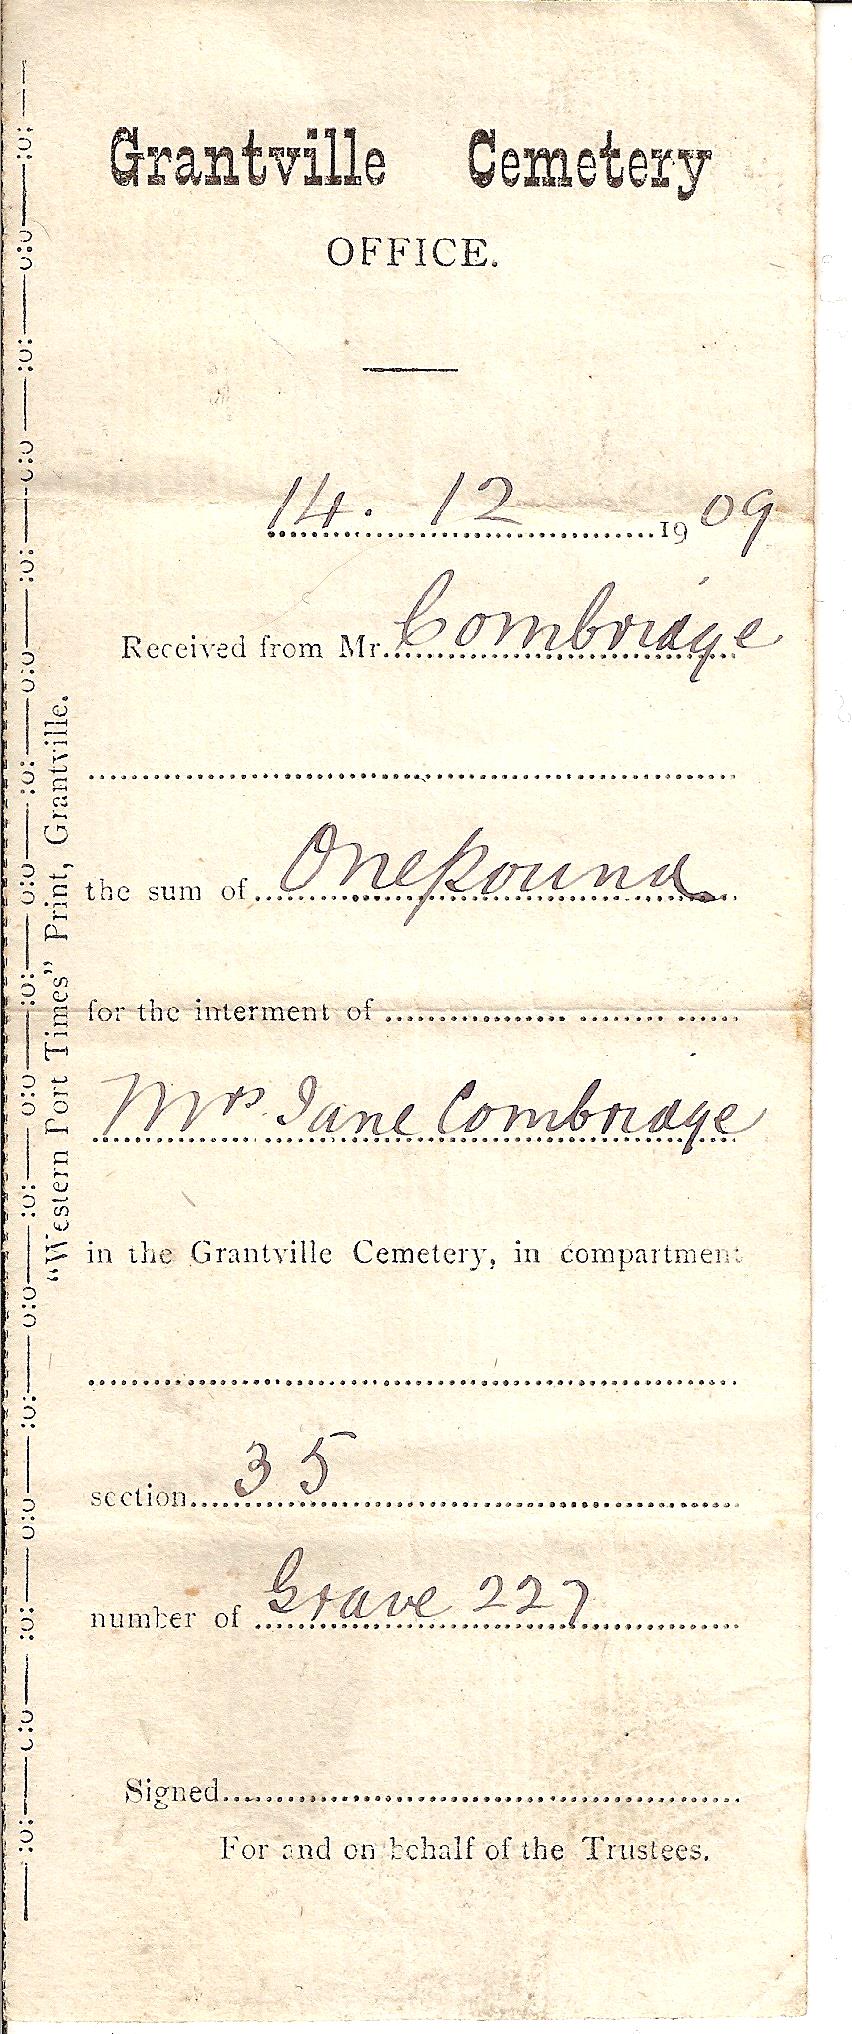 Grantville Cemetery
OFFICE.
14. 12 1909
Received from Mr. Combridge
the sum of One Pound
for the interment of
Mrs Jane Combridge
in the Grantville Cemetery, in compartment
section 35
number of Grave 227
Signed
For and on behalf of the Trustees.
"Western Port Times" Print, Grantville.